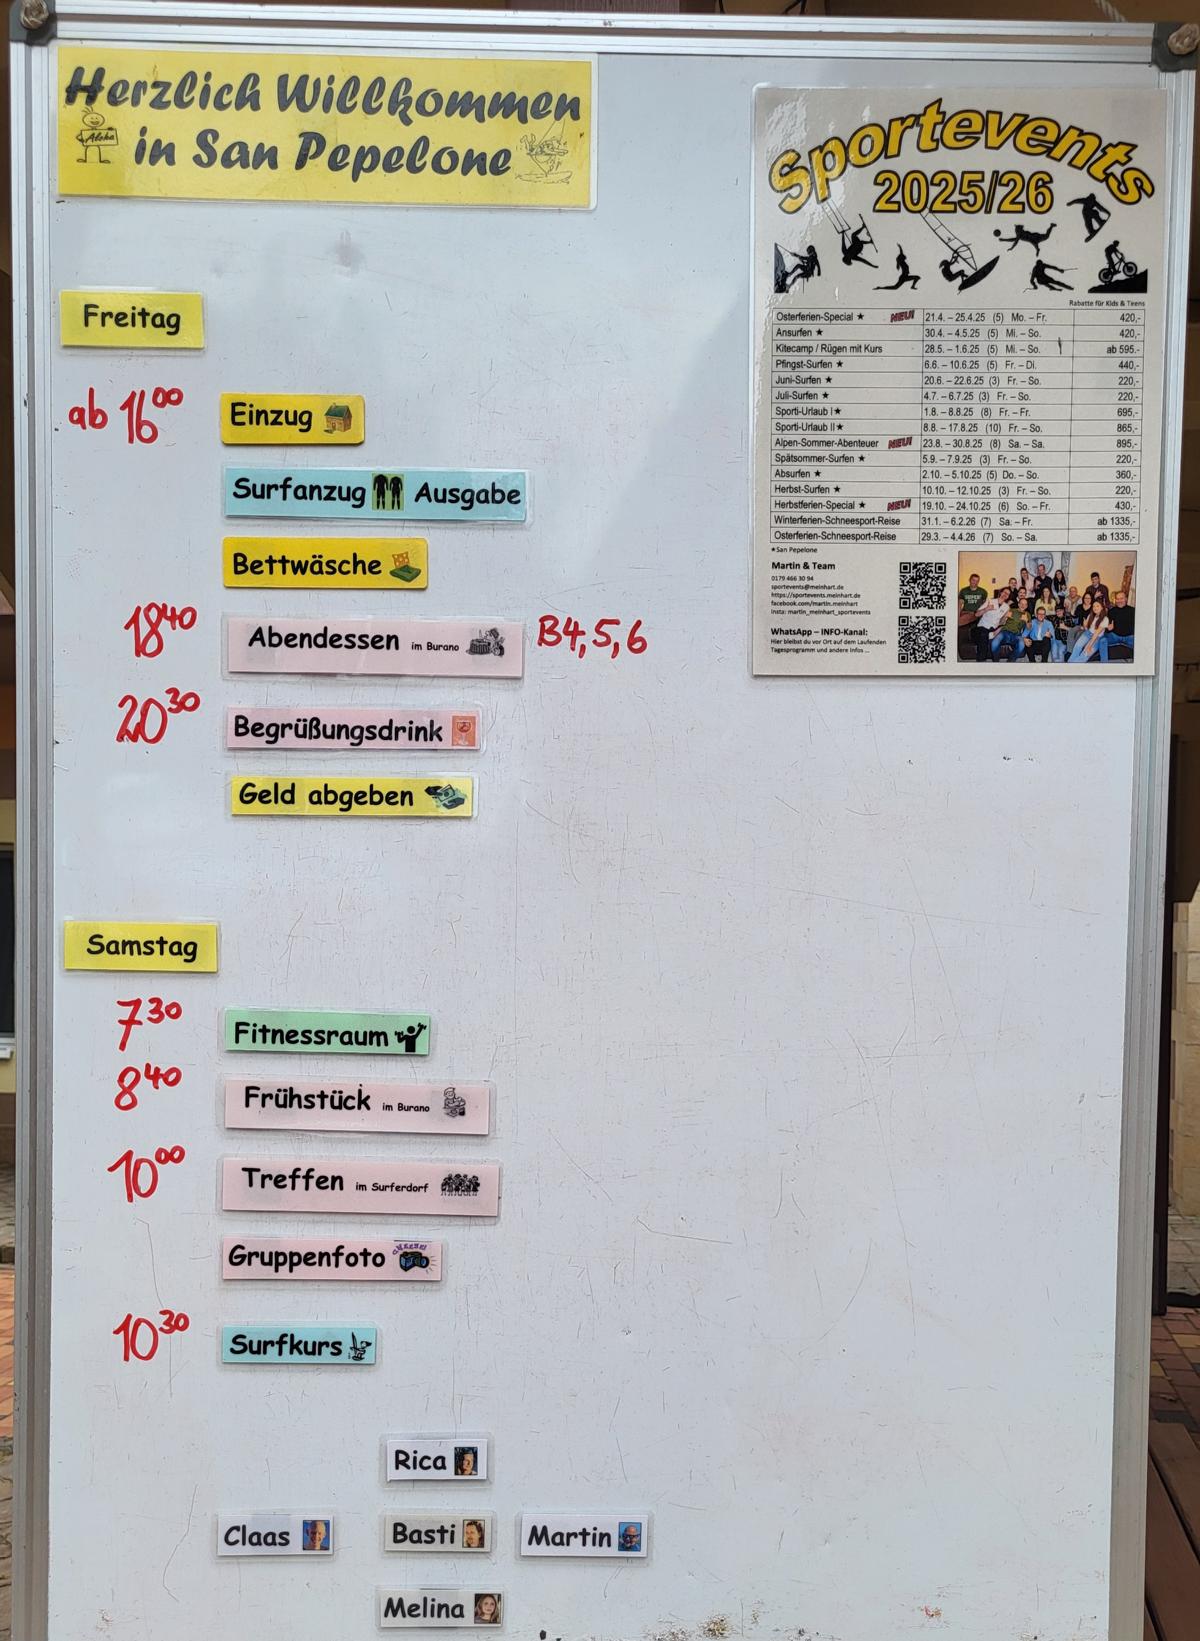 Herzlich Willkommen
in San Pepelone
Aloha
Freitag
ab 16⁰⁰ Einzug
Surfanzug Ausgabe
Bettwäsche
18⁴⁰ Abendessen im Burano B4,5,6
20³⁰ Begrüßungsdrink
Geld abgeben
Samstag
7³⁰ Fitnessraum
8⁴⁰ Frühstück im Burano
10⁰⁰ Treffen im Surferdorf
Gruppenfoto
10³⁰ Surfkurs
Rica
Claas Basti Martin
Melina
Sportevents
2025/26
Rabatte für Kids & Teens
Osterferien-Special ★ NEU! 21.4. – 25.4.25 (5) Mo. – Fr. 420,-
Ansurfen ★ 30.4. – 4.5.25 (5) Mi. – So. 420,-
Kitecamp / Rügen mit Kurs 28.5. – 1.6.25 (5) Mi. – So. ab 595.-
Pfingst-Surfen ★ 6.6. – 10.6.25 (5) Fr. – Di. 440,-
Juni-Surfen ★ 20.6. – 22.6.25 (3) Fr. – So. 220,-
Juli-Surfen ★ 4.7. – 6.7.25 (3) Fr. – So. 220,-
Sporti-Urlaub I★ 1.8. – 8.8.25 (8) Fr. – Fr. 695,-
Sporti-Urlaub II★ 8.8. – 17.8.25 (10) Fr. – So. 865,-
Alpen-Sommer-Abenteuer NEU! 23.8. – 30.8.25 (8) Sa. – Sa. 895,-
Spätsommer-Surfen ★ 5.9. – 7.9.25 (3) Fr. – So. 220,-
Absurfen ★ 2.10. – 5.10.25 (5) Do. – So. 360,-
Herbst-Surfen ★ 10.10. – 12.10.25 (3) Fr. – So. 220,-
Herbstferien-Special ★ NEU! 19.10. – 24.10.25 (6) So. – Fr. 430,-
Winterferien-Schneesport-Reise 31.1. – 6.2.26 (7) Sa. – Fr. ab 1335,-
Osterferien-Schneesport-Reise 29.3. – 4.4.26 (7) So. – Sa. ab 1335,-
★San Pepelone
Martin & Team
0179 466 30 94
sportevents@meinhart.de
https://sportevents.meinhart.de
facebook.com/martin.meinhart
Insta: martin_meinhart_sportevents
WhatsApp – INFO-Kanal:
Hier bleibst du vor Ort auf dem Laufenden
Tagesprogramm und andere Infos ...